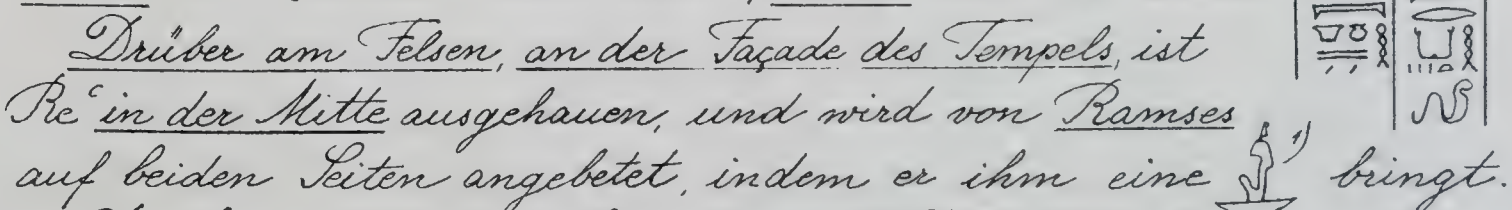 Drüber am Felsen, an der Façade des Tempels, ist
Reʿ in der Mitte ausgehauen, und wird von Ramses
auf beiden Seiten angebetet, indem er ihm eine 1) bringt.